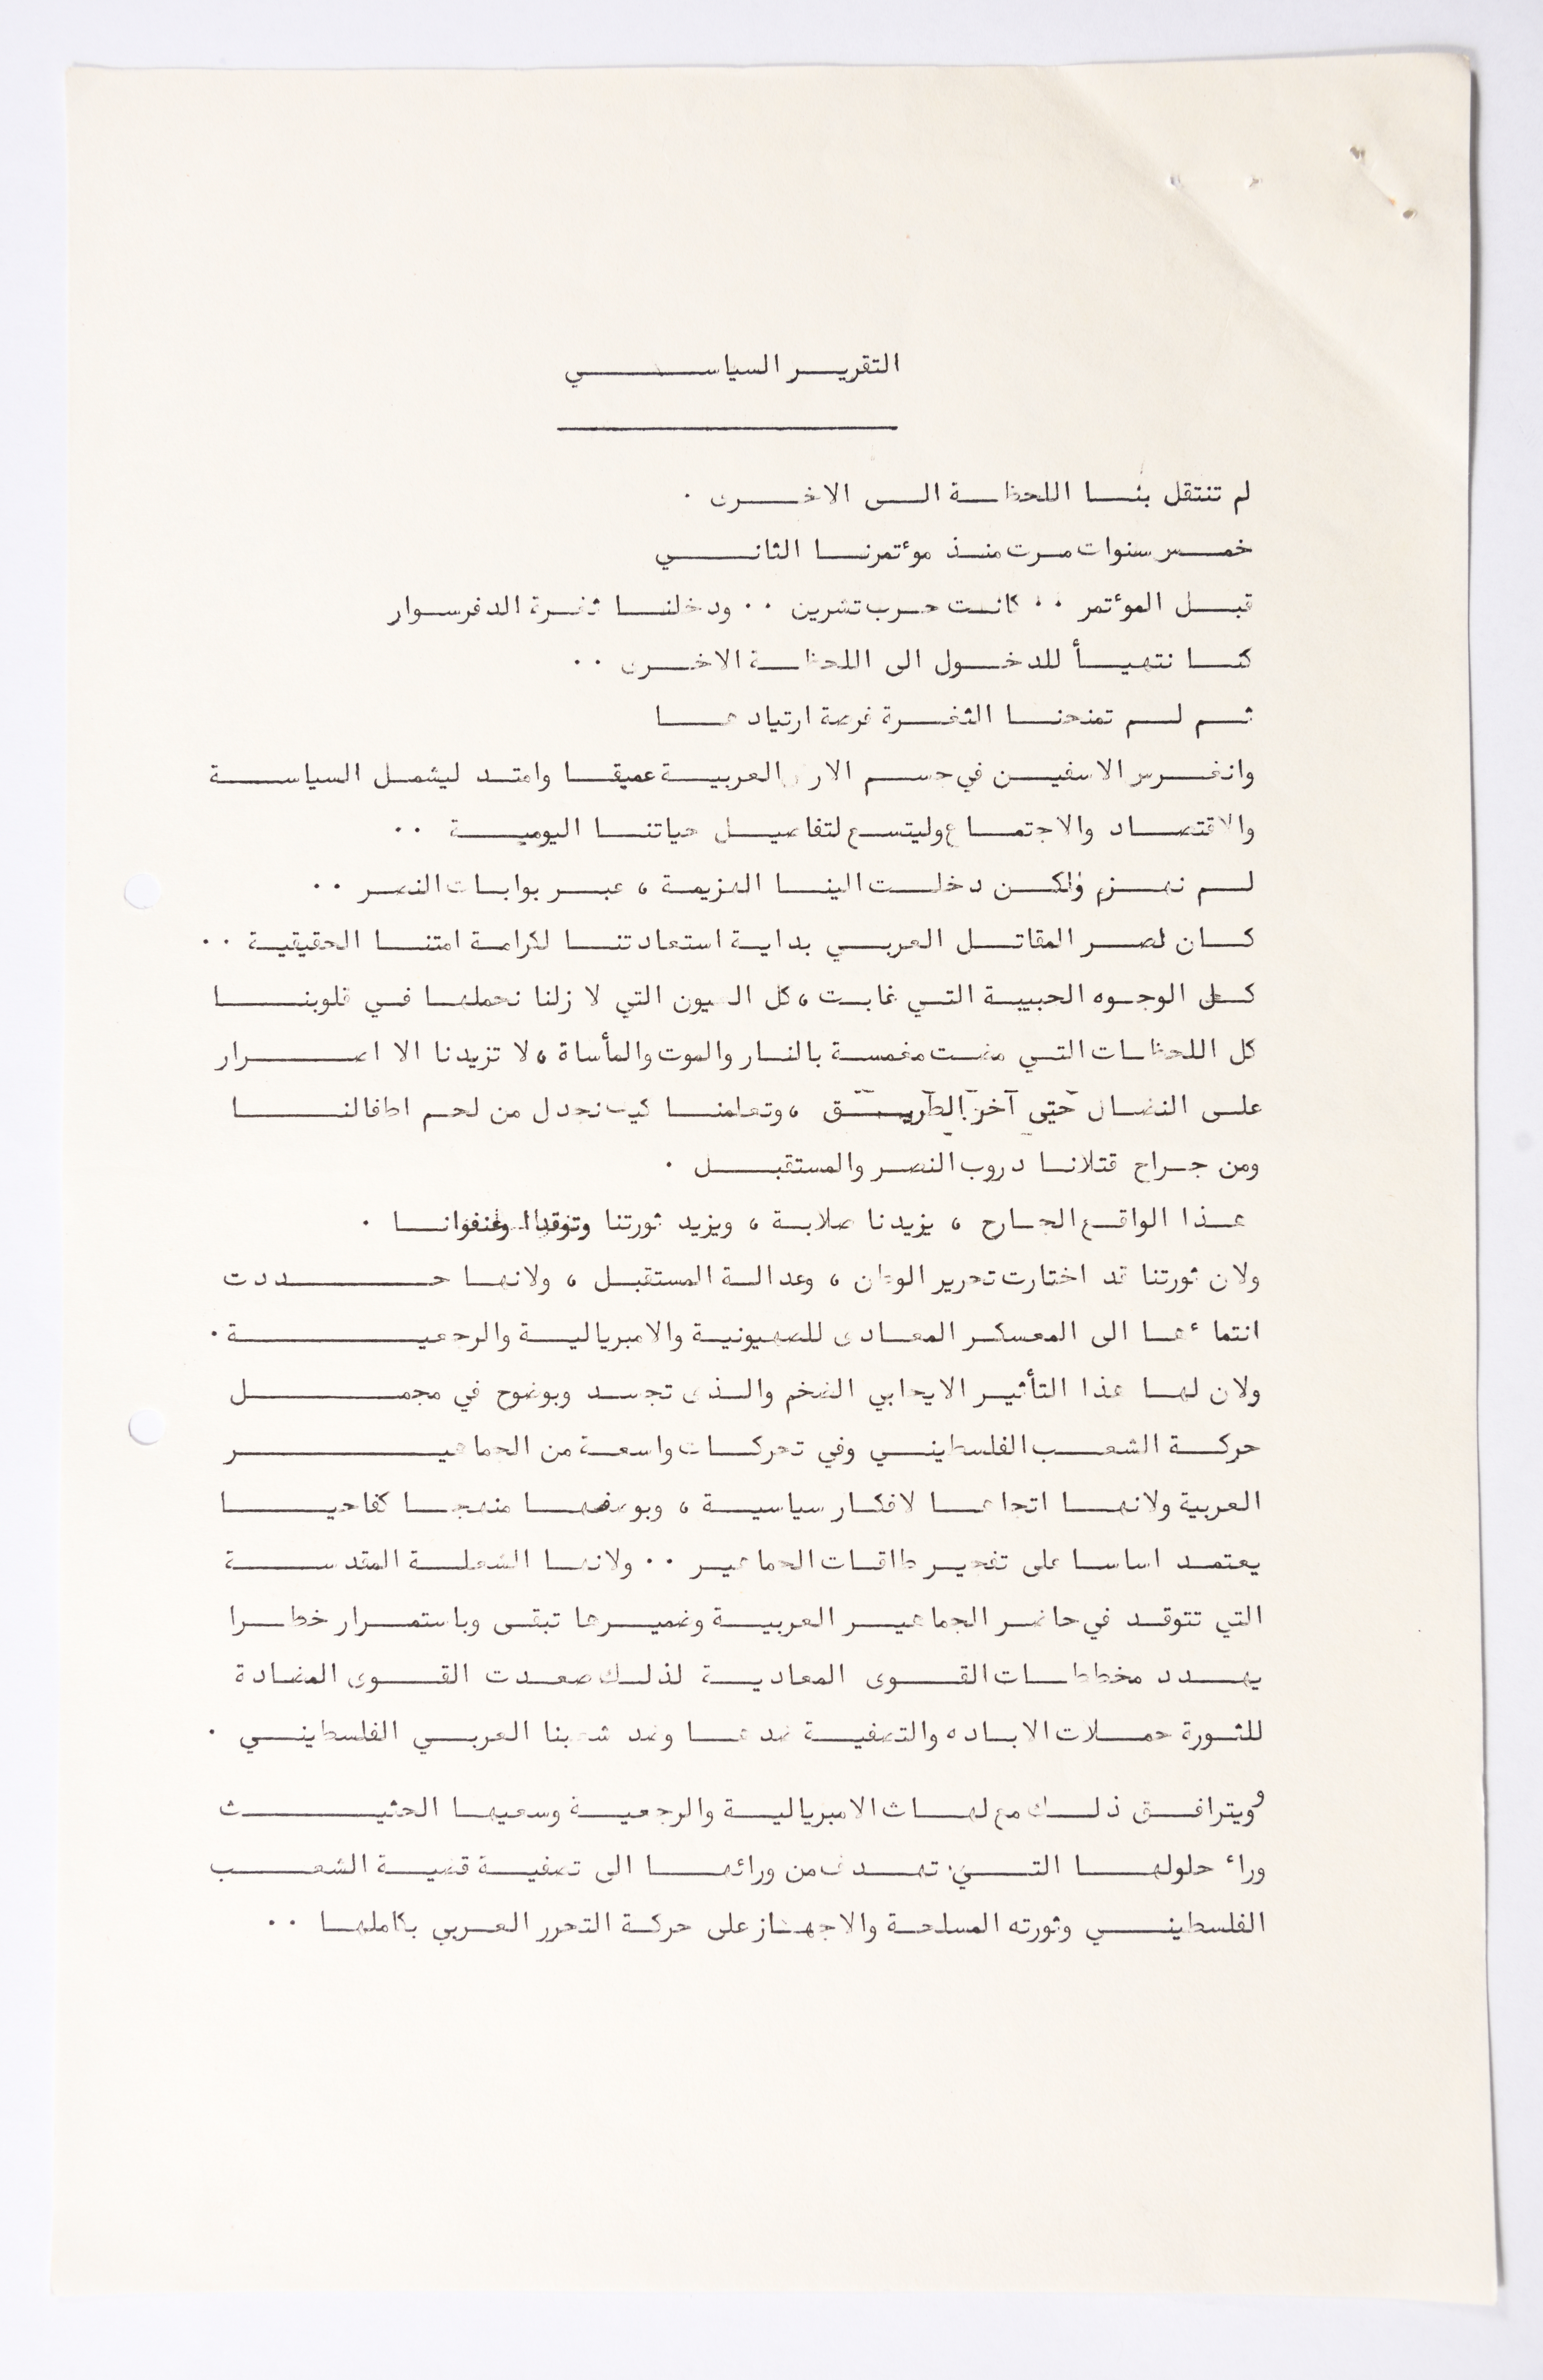 التقرير السياسي
لم تنتقل بنا اللحظة الى الاخرى .
خمس سنوات مرت منذ مؤتمرنا الثاني
قبل المؤتمر .. كانت حرب تشرين .. ودخلنا ثغرة الدفرسوار
كنا نتهيأ للدخول الى اللحظة الاخرى ..
ثم لم تمنحنا الثغرة فرصة ارتيادها
وانغرس الاسفين في جسم الارض العربية عميقا وامتد ليشمل السياسة
والاقتصاد والاجتماع وليتسع لتفاصيل حياتنا اليومية ..
لم نهزم ولكن دخلت الينا الهزيمة ، عبر بوابات النصر ..
كان نصر المقاتل العربي بداية استعادتنا لكرامة امتنا الحقيقية ..
كل الوجوه الحبيبة التي غابت ، كل العيون التي لا زلنا نحملها في قلوبنا
كل اللحظات التي مضت مغمسة بالنار والموت والمأساة ، لا تزيدنا الا اصرار
على النضال حتى آخر الطريق ، وتعلمنا كيف نجدل من لحم اطفالنا
ومن جراح قتلانا دروب النصر والمستقبل .
هذا الواقع الجارح ، يزيدنا صلابة ، ويزيد ثورتنا وتوقدا وعنفوانا .
ولان ثورتنا قد اختارت تحرير الوطن ، وعدالة المستقبل ، ولانها حددت
انتماءها الى المعسكر المعادى للصهيونية والامبريالية والرجعية .
ولان لها هذا التأثير الايجابي الضخم والذى تجسد وبوضوح في مجمل
حركة الشعب الفلسطيني وفي تحركات واسعة من الجماهير
العربية ولانها اتجاها لافكار سياسية ، وبوصفها منهجا كفاحيا
يعتمد اساسا على تفجير طاقات الجماهير .. ولانها الشعلة المقدسة
التي تتوقد في حاضر الجماهير العربية وضميرها تبقى وباستمرار خطرا
يهدد مخططات القوى المعادية لذلك صعدت القوى المضادة
للثورة حملات الاباده والتصفية ضدها وضد شعبنا العربي الفلسطيني .
ويترافق ذلك مع لهاث الامبريالية والرجعية وسعيها الحثيث
وراء حلولها التي تهدف من ورائها الى تصفية قضية الشعب
الفلسطيني وثورته المسلحة والاجهاز على حركة التحرر العربي بكاملها ..